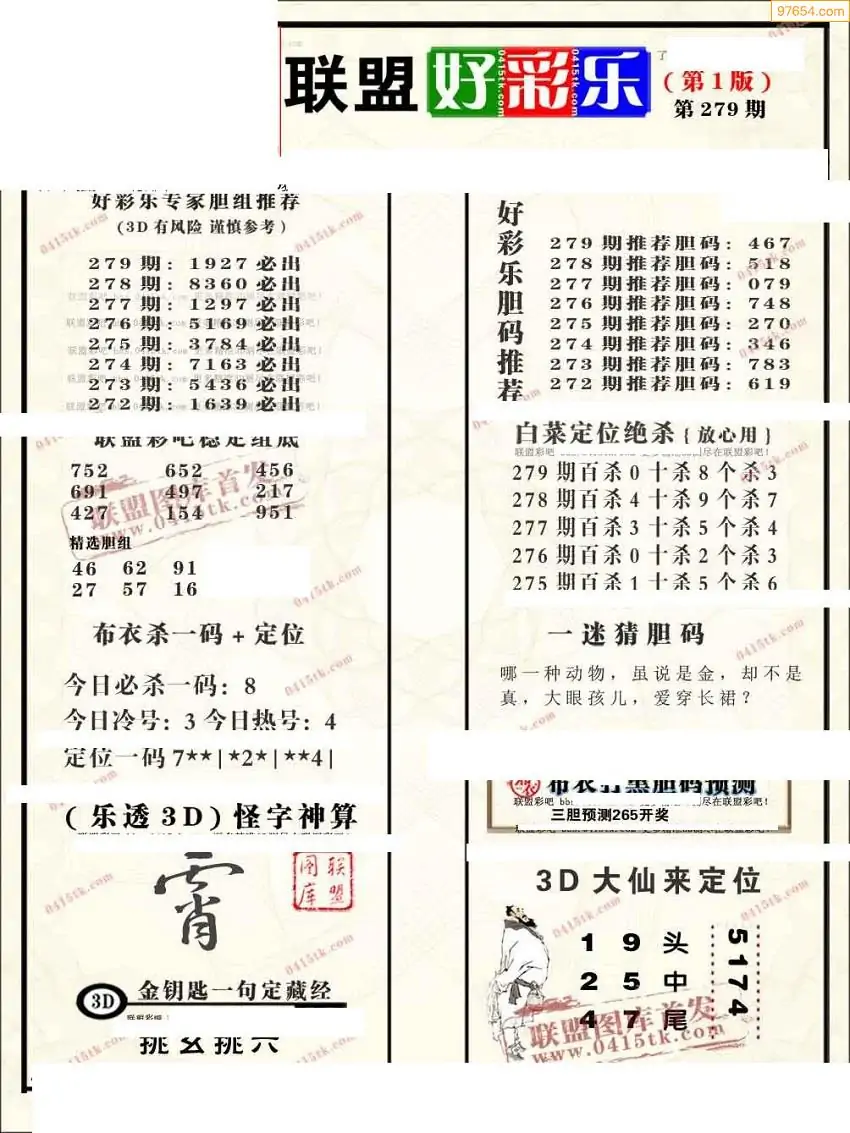 97654.com
联盟好彩乐
0415tk.com
0415tk.com
0415tk.com
(第1版)
第279期
好彩乐专家胆组推荐
(3D有风险 谨慎参考)
279期: 1927必出
278期: 8360必出
277期: 1297必出
276期: 5169必出
275期: 3784必出
274期: 7163必出
273期: 5436必出
272期: 1639必出
联盟彩吧稳定组底
752 652 456
691 497 217
427 154 951
联盟图库首发
www.0415tk.com
精选胆组
46 62 91
27 57 16
布衣杀一码+定位
今日必杀一码: 8
今日冷号: 3 今日热号: 4
定位一码 7**|*2*|**4|
(乐透3D)怪字神算
霄
联盟图库
3D 金钥匙一句定藏经
好彩乐胆码推荐
279期推荐胆码: 467
278期推荐胆码: 518
277期推荐胆码: 079
276期推荐胆码: 748
275期推荐胆码: 270
274期推荐胆码: 346
273期推荐胆码: 783
272期推荐胆码: 619
白菜定位绝杀{放心用}
279期百杀0十杀8个杀3
278期百杀4十杀9个杀7
277期百杀3十杀5个杀4
276期百杀0十杀2个杀3
275期百杀1十杀5个杀6
一迷猜胆码
哪一种动物，虽说是金，却不是
真，大眼孩儿，爱穿长裙？
三胆预测265开奖
3D大仙来定位
1 9 头
2 5 中
4 7 尾
5174
联盟图库首发
www.0415tk.com